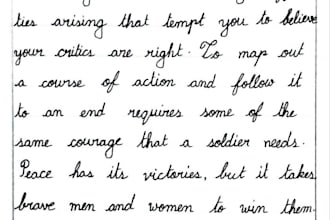 ties arising that tempt you to believe
your critics are right. To map out
a course of action and follow it
to an end requires some of the
same courage that a soldier needs.
Peace has its victories, but it takes
brave men and women to win them.